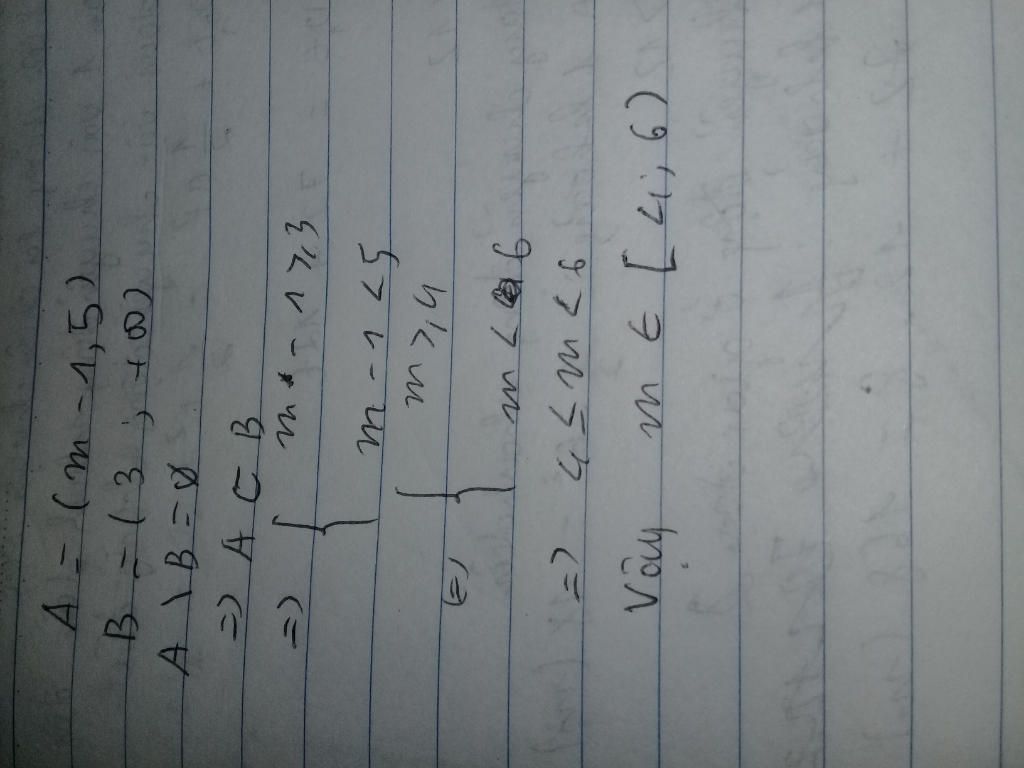 A = (m - 1, 5)
B = (3 ; +∞)
A \ B = ∅
=> A ⊂ B
=> { m - 1 ≥ 3
m - 1 < 5
(=) { m ≥ 4
m < 6
=> 4 ≤ m < 6
Vậy m ∈ [4; 6)